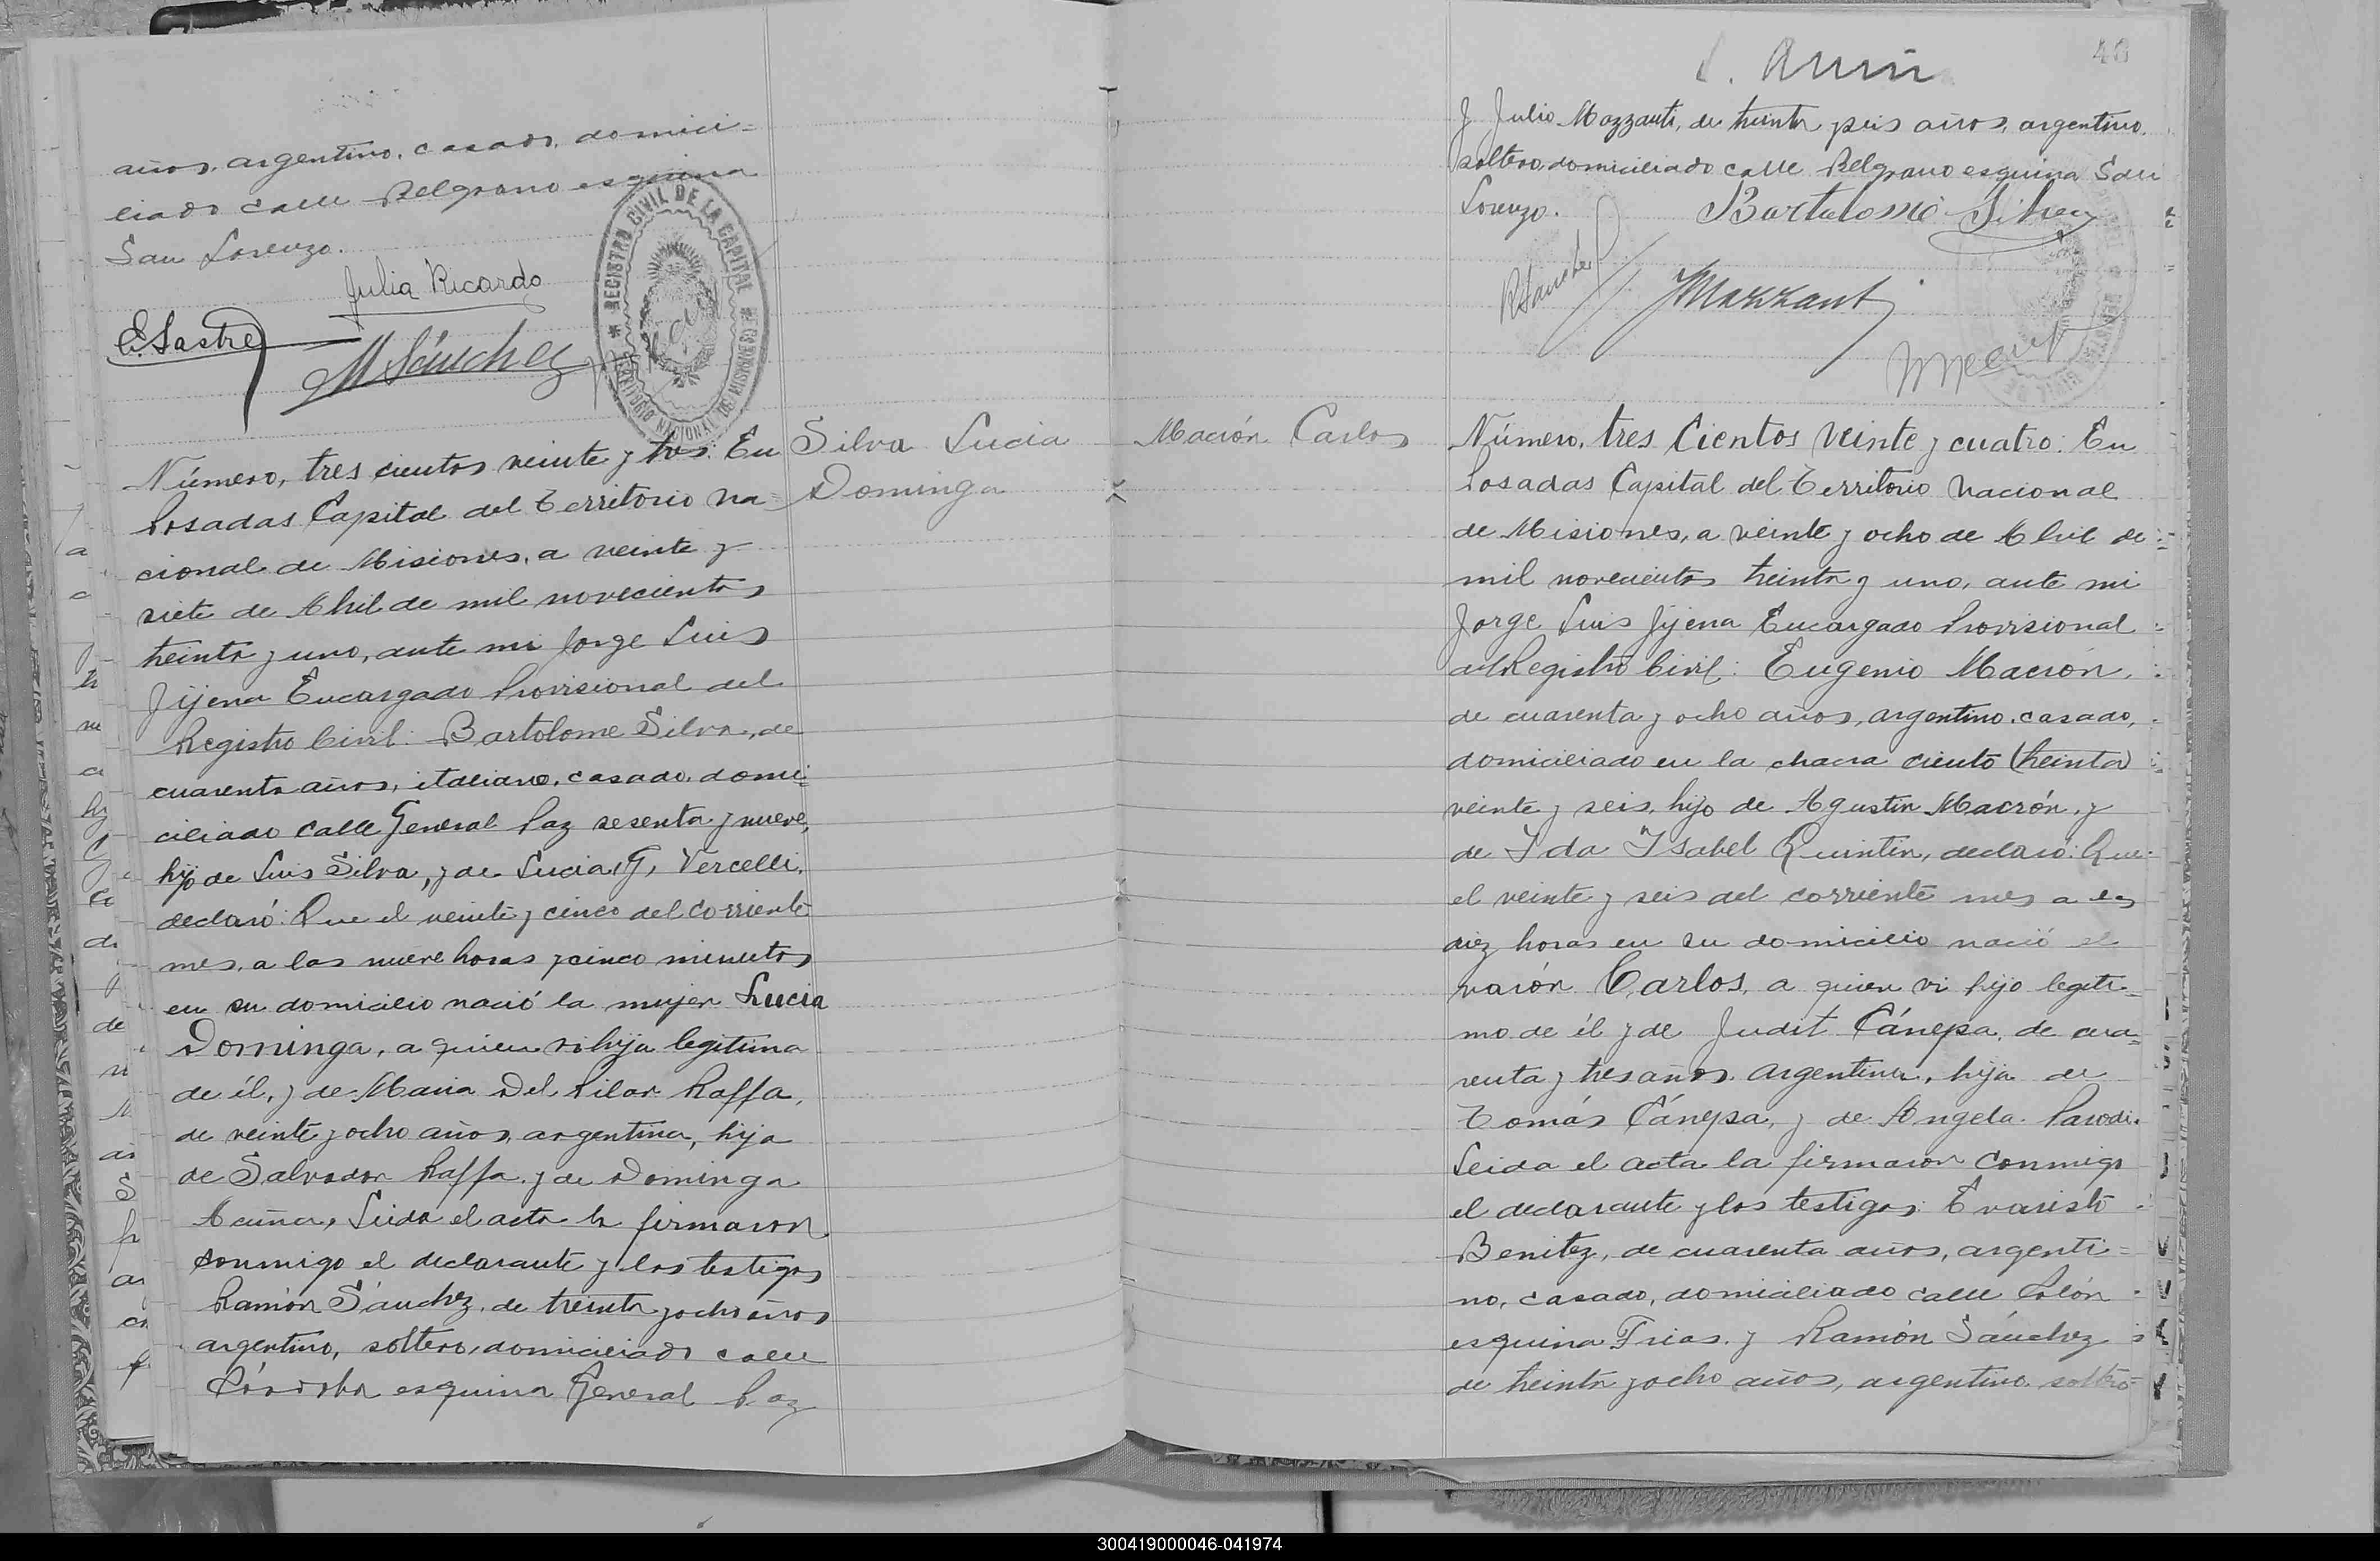 años, argentino, casado, domici-
liado calle Belgrano esquina
San Lorenzo.
Julia Ricardo
E. Sastre
M Sánchez
REGISTRO CIVIL DE LA CAPITAL
TERRITORIO NACIONAL DE MISIONES
Silva Lucia
Dominga
Número, tres cientos veinte y tres: En
Posadas Capital del Territorio Na-
cional de Misiones, a veinte y
siete de Abril de mil novecientos
treinta y uno, ante mi Jorge Luis
Jijena Encargado Provisional del
Registro Civil: Bartolome Silva, de
cuarenta años, italiano, casado, domi-
ciliado calle General Paz sesenta y nueve,
hijo de Luis Silva, y de Lucia G. Vercelli,
declaró: Que el veinte y cinco del corriente
mes, a las nueve horas y cinco minutos
en su domicilio nació la mujer Lucia
Dominga, a quien vi hija legitima
de él, y de Maria Del Pilar Raffa,
de veinte y ocho años, argentina, hija
de Salvador Raffa, y de Dominga
Acuña, Leida el acta la firmaron
conmigo el declarante y los testigos
Ramón Sánchez, de treinta y ocho años
argentino, soltero, domiciliado calle
Córdoba esquina General Paz
40
y Julio Mazzanti, de treinta y seis años, argentino,
soltero, domiciliado calle Belgrano esquina San
Lorenzo.
Bartolomé Silva
RSanchez
JMazzanti
Mación Carlos
Número, tres Cientos Veinte y cuatro: En
Posadas Capital del Territorio Nacional
de Misiones, a veinte y ocho de Abril de
mil novecientos treinta y uno, ante mi
Jorge Luis Jijena Encargado Provisional
del Registro Civil: Eugenio Mación,
de cuarenta y ocho años, argentino, casado,
domiciliado en la chacra ciento (treinta)
veinte y seis, hijo de Agustin Mación, y
de Ida Isabel Quintin, declaró: Que
el veinte y seis del corriente mes a las
diez horas en su domicilio nació el
varón Carlos, a quien vi hijo legiti-
mo de él y de Judit Cánepa, de cua-
renta y tres años, argentina, hija de
Tomás Cánepa, y de Angela Parodi.
Leida el acta la firmaron conmigo
el declarante y los testigos: Evaristo
Benitez, de cuarenta años, argenti-
no, casado, domiciliado calle Colón
esquina Frias, y Ramón Sánchez
de treinta y ocho años, argentino, soltero
300419000046-041974